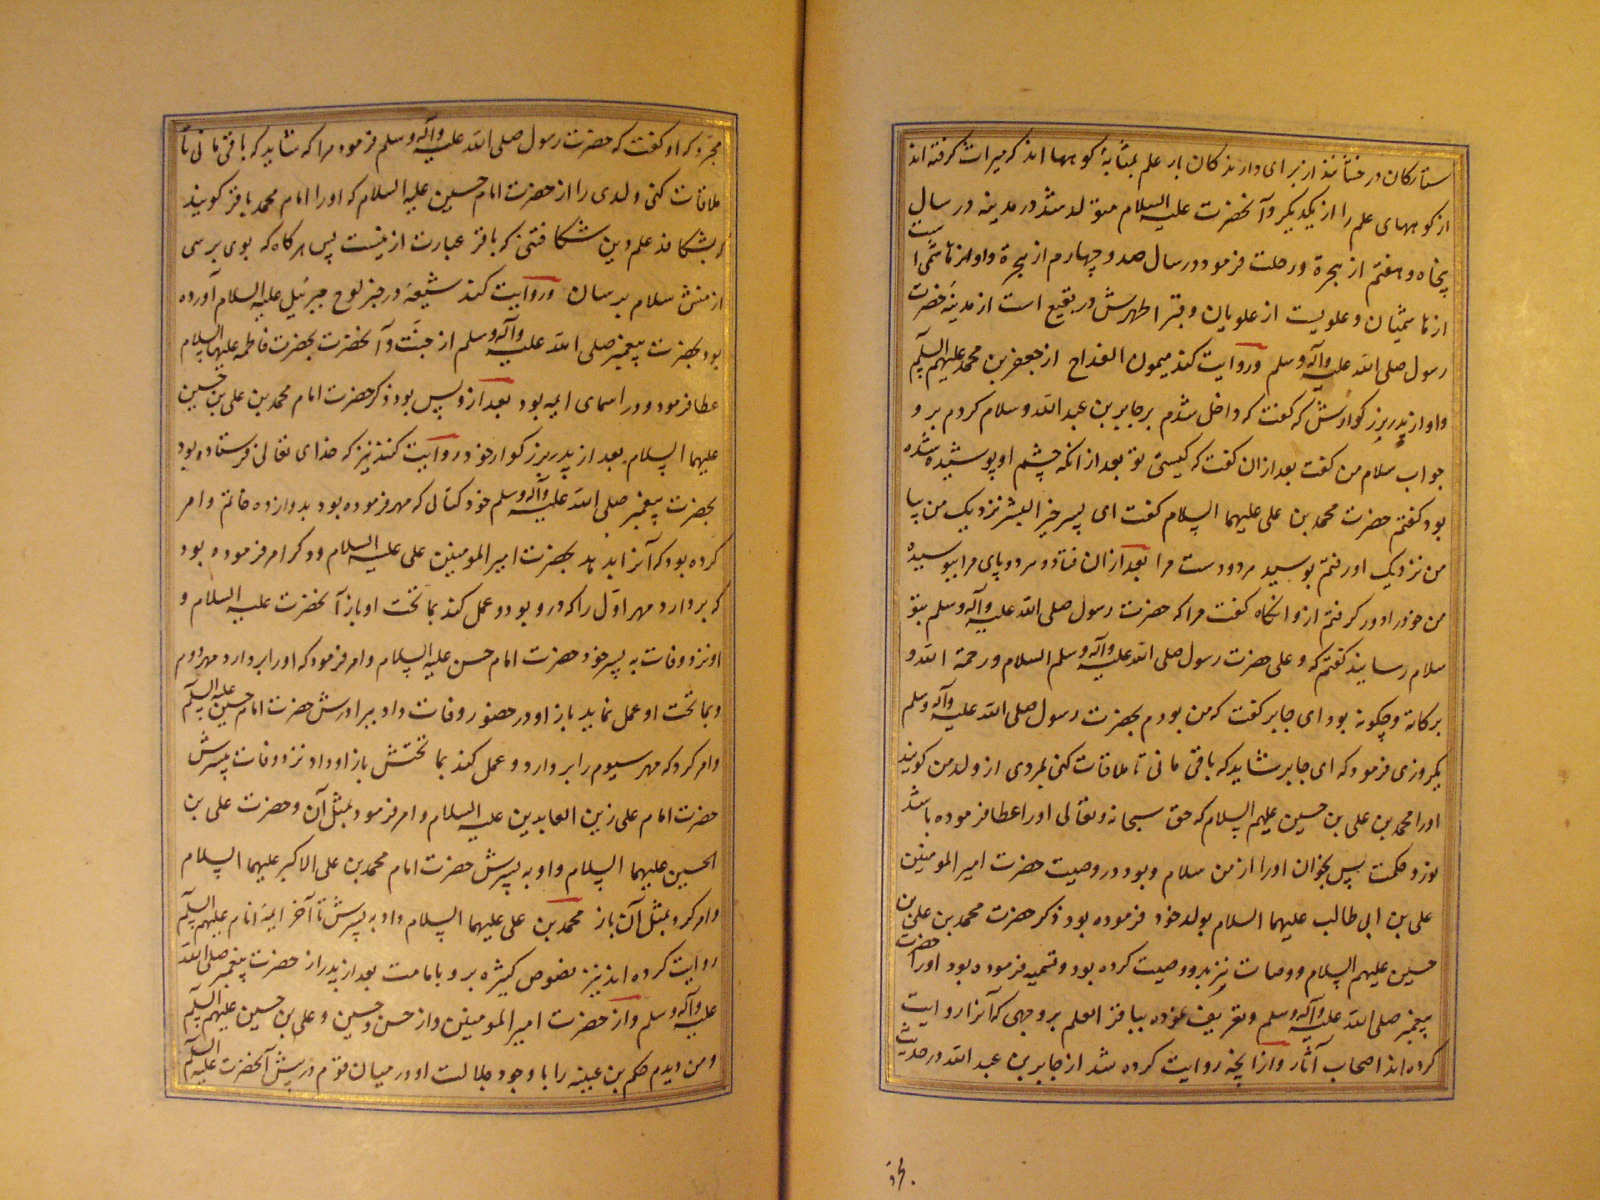 ستارکان درخشانند از برای دارندکان بار علم بمثابهٔ کوهها اند که میراث کرفته اند
از کوههای علم را از یکدیکر و آنحضرت علیه السلام متولد شد در مدینه در سال
پنجاه و هفتم از هجرة و رحلت فرمود در سال صد و چهارم از هجرة و او از هاشمی است
از هاشمیان و علویست از علویان و قبر اطهرش در بقیع است از مدینه حضرت
رسول صلی الله علیه وآله وسلم وروایت کند میمون القداح از جعفر بن محمد علیهم السلم
و او از پدر بزرکوارش که کفت که داخل شدم بر جابر بن عبد الله و سلام کردم برو
جواب سلام من کفت بعد از ان کفت که کیستی تو بعد از انکه چشم او پوشیده شده
بود کفتم حضرت محمد بن علی علیهما السلام کفت ای پسر خیر البشر نزدیک من بیا
من نزدیک او رفتم بوسید هر دو دست مرا بعد از ان فتاد و هر دو پای مرا ببوسید
من خود را دور کرفتم از و انکاه کفت مرا که حضرت رسول صلی الله علیه وآله وسلم بتو
سلام رسانید کفتم که و علی حضرت رسول صلی الله علیه وآله وسلم السلام و رحمة الله و
برکاته و چکونه بود ای جابر کفت که من بودم بحضرت رسول صلی الله علیه وآله وسلم
یکروزی فرمود که ای جابر شاید که باقی مانی تا ملاقات کنی بمردی از ولد من کویند
او را محمد بن علی بن حسین علیهم السلام که حق سبحانه وتعالی او را عطا فرموده باشد
نور و حکمت پس بخوان او را از من سلام و بود در وصیت حضرت امیر المومنین
علی بن ابی طالب علیهما السلام بولد خود فرموده بود ذکر حضرت محمد بن علی بن
حسین علیهم السلام و وصات نیز بدو وصیت کرده بود و تسمیه فرموده بود او را حضرت
پیغمبر صلی الله علیه وآله وسلم و تعریف نموده بباقر العلم بر وجهی که آنرا روایت
کرده اند اصحاب آثار و از انچه روایت کرده شد از جابر بن عبد الله در حدیث
مجرد که او کفت که حضرت رسول صلی الله علیه وآله وسلم فرمود مرا که شاید که باقی مانی تا
ملاقات کنی ولدی را از حضرت امام حسین علیه السلام که او را امام محمد باقر کویند
بشکافد علم دین شکافتنی که باقر عبارت ازینست پس هرکاه که بوی برسی
از منش سلام برسان وروایت کنند شیعه در خبر لوح جبرئیل علیه السلام آورده
بود بحضرت پیغمبر صلی الله علیه وآله وسلم از جنت و آنحضرت بحضرت فاطمه علیها السلام
عطا فرمود و در اسمای ایمه بود بعد ازو پس بود ذکر حضرت امام محمد بن علی بن حسین
علیهما السلام بعد از پدر بزرکوار خود روایت کنند نیز که خدای تعالی فرستاده بود
بحضرت پیغمبر صلی الله علیه وآله وسلم خود کتابی که مهر فرموده بود بدوازده خاتم و امر
کرده بود که آنرا بدهد بحضرت امیر المومنین علی علیه السلام و دکر امر فرموده بود
که بردارد مهر اول را که درو بود و عمل کند بما تحت او باز آنحضرت علیه السلام و
او نزد وفات به پسر خود حضرت امام حسن علیه السلام و امر فرمود که او را بردارد مهر دوم
و بما تحت او عمل نماید باز او در حضور وفات داد ببرادرش حضرت امام حسین علیه السلم
و امر کرد که مهر سیوم را بردارد و عمل کند بما تحتش باز او داد نزد وفات پسرش
حضرت امام علی زین العابدین علیه السلام و امر فرمود بمثل آن و حضرت علی بن
الحسین علیهما السلام و او به پسرش حضرت امام محمد بن علی الاکبر علیهما السلام
و امر کرد بمثل آن باز محمد بن علی علیهما السلام داد به پسرش تا آخر ایمه انام علیهم السلم
روایت کرده اند نیز نصوص کثیره برو بامامت بعد از پدر از حضرت پیغمبر صلی الله
علیه وآله وسلم و از حضرت امیر المومنین و از حسن و حسین و علی بن حسین علیهم السلم
و من دیدم حکم بن عیینه را با وجود جلالت او در میان قوم در پیش آنحضرت علیه السلم